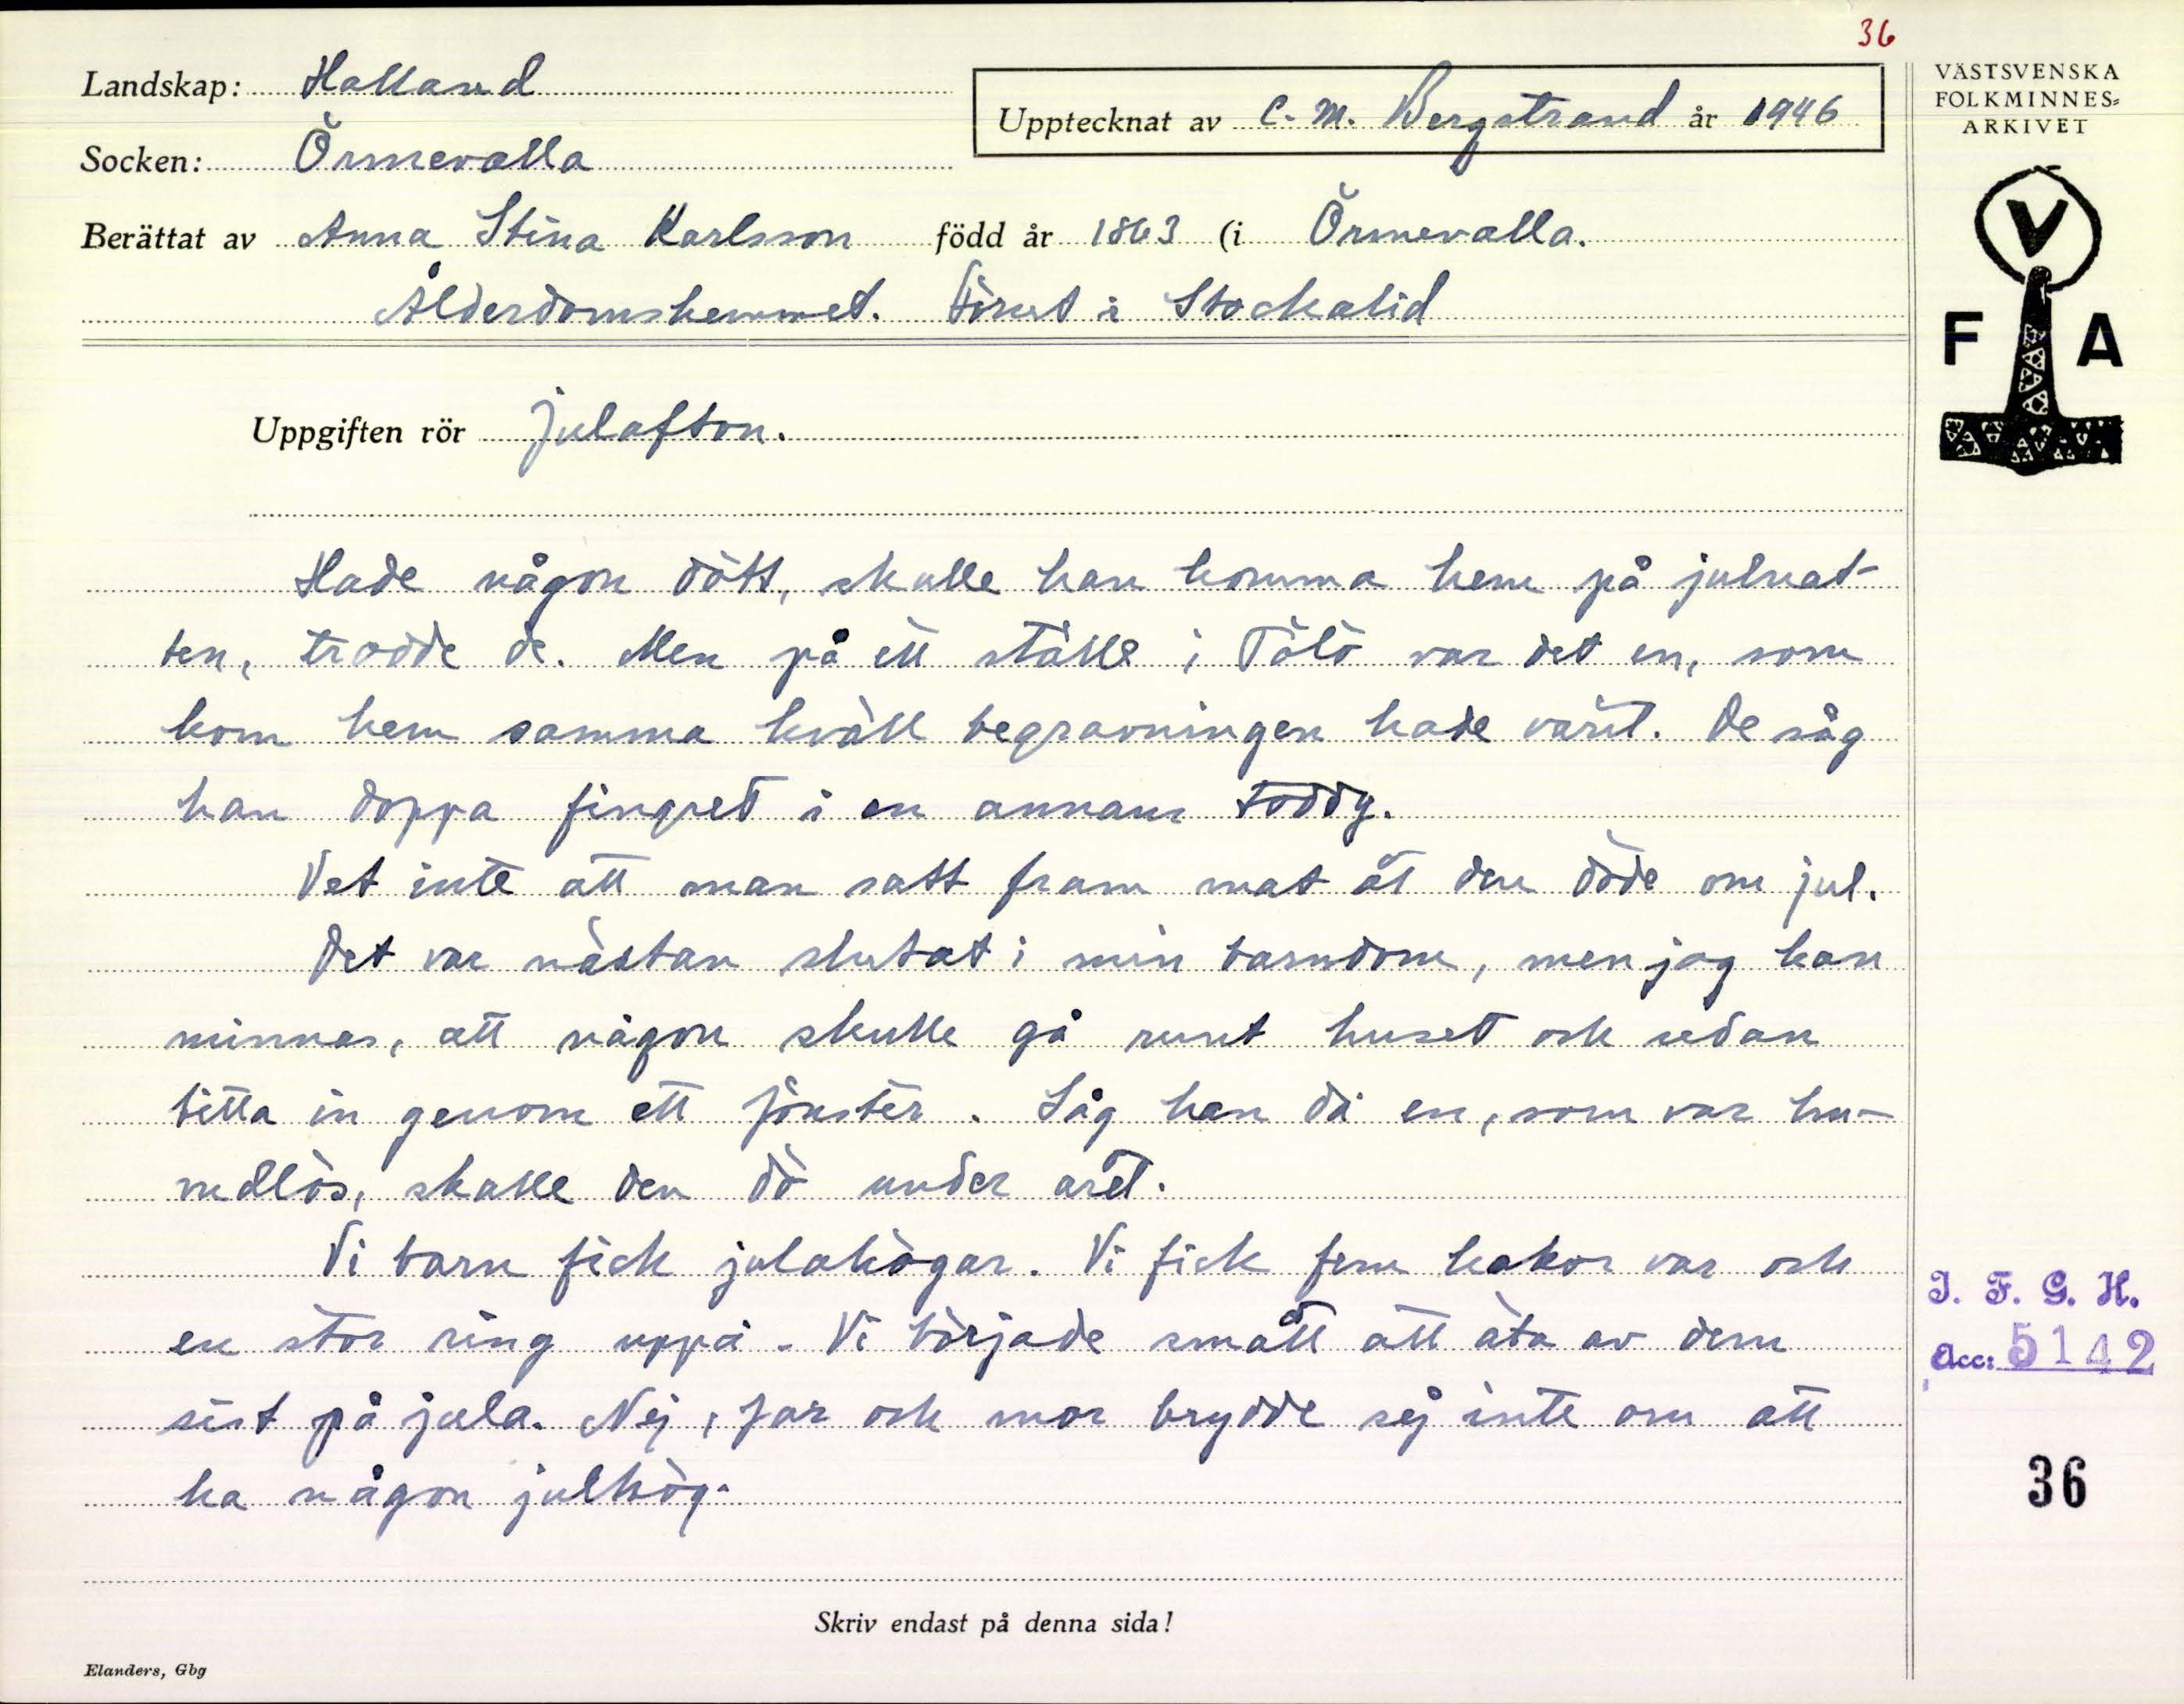 36
Landskap: Halland
Upptecknat av C. M. Bergstrand år 1946
Socken: Örmevalla
Berättat av Anna Stina Karlsson född år 1863 (i Örmevalla.
Ålderdomshemmet. Förut i Stockalid
Uppgiften rör Julafton.
Hade någon dött, skulle han komma hem på julnat-
ten, trodde de. Men på ett ställe i Tölö var det en, som
kom hem samma kväll begravningen hade varit. De såg
han doppa fingret i en annans toddy.
Vet inte att man satt fram mat åt den döde om jul.
Det var nästan slutat i min barndom, men jag kan
minnas, att någon skulle gå runt huset och sedan
titta in genom ett fönster. Såg han då en, som var hu-
vudlös, skulle den dö under året.
Vi barn fick julahögar. Vi fick fem kakor var och
en stor ring uppå. Vi började smått att äta av dem
sist på jula. Nej, far och mor brydde sej inte om att
ha någon julhög.
Skriv endast på denna sida!
Elanders, Gbg
VÄSTSVENSKA
FOLKMINNES=
ARKIVET
V
F A
I. F. G. H.
Acc: 5142
36